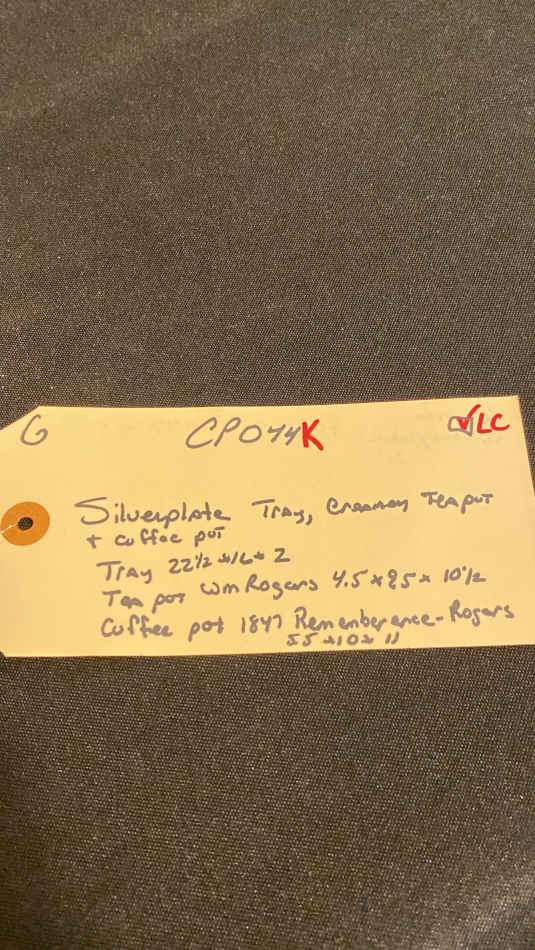 G CPO44K ☑LC
Silverplate Tray, Creamer Teapot
+ Coffee pot
Tray 22½ x 16 x 2
Tea pot Wm Rogers 4.5 x 9.5 x 10½
Coffee pot 1847 Rememberance-Rogers
5.5 x 10 x 11